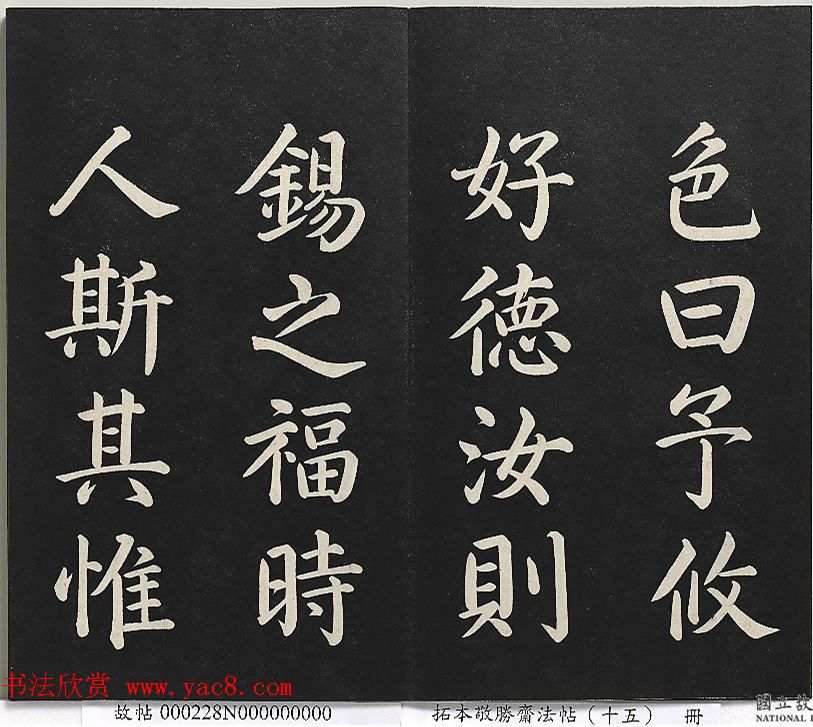 色曰予攸
好德汝則
錫之福時
人斯其惟
书法欣赏 www.yac8.com
故帖 000228N000000000
拓本敬勝齋法帖（十五） 冊
國立故
NATIONAL